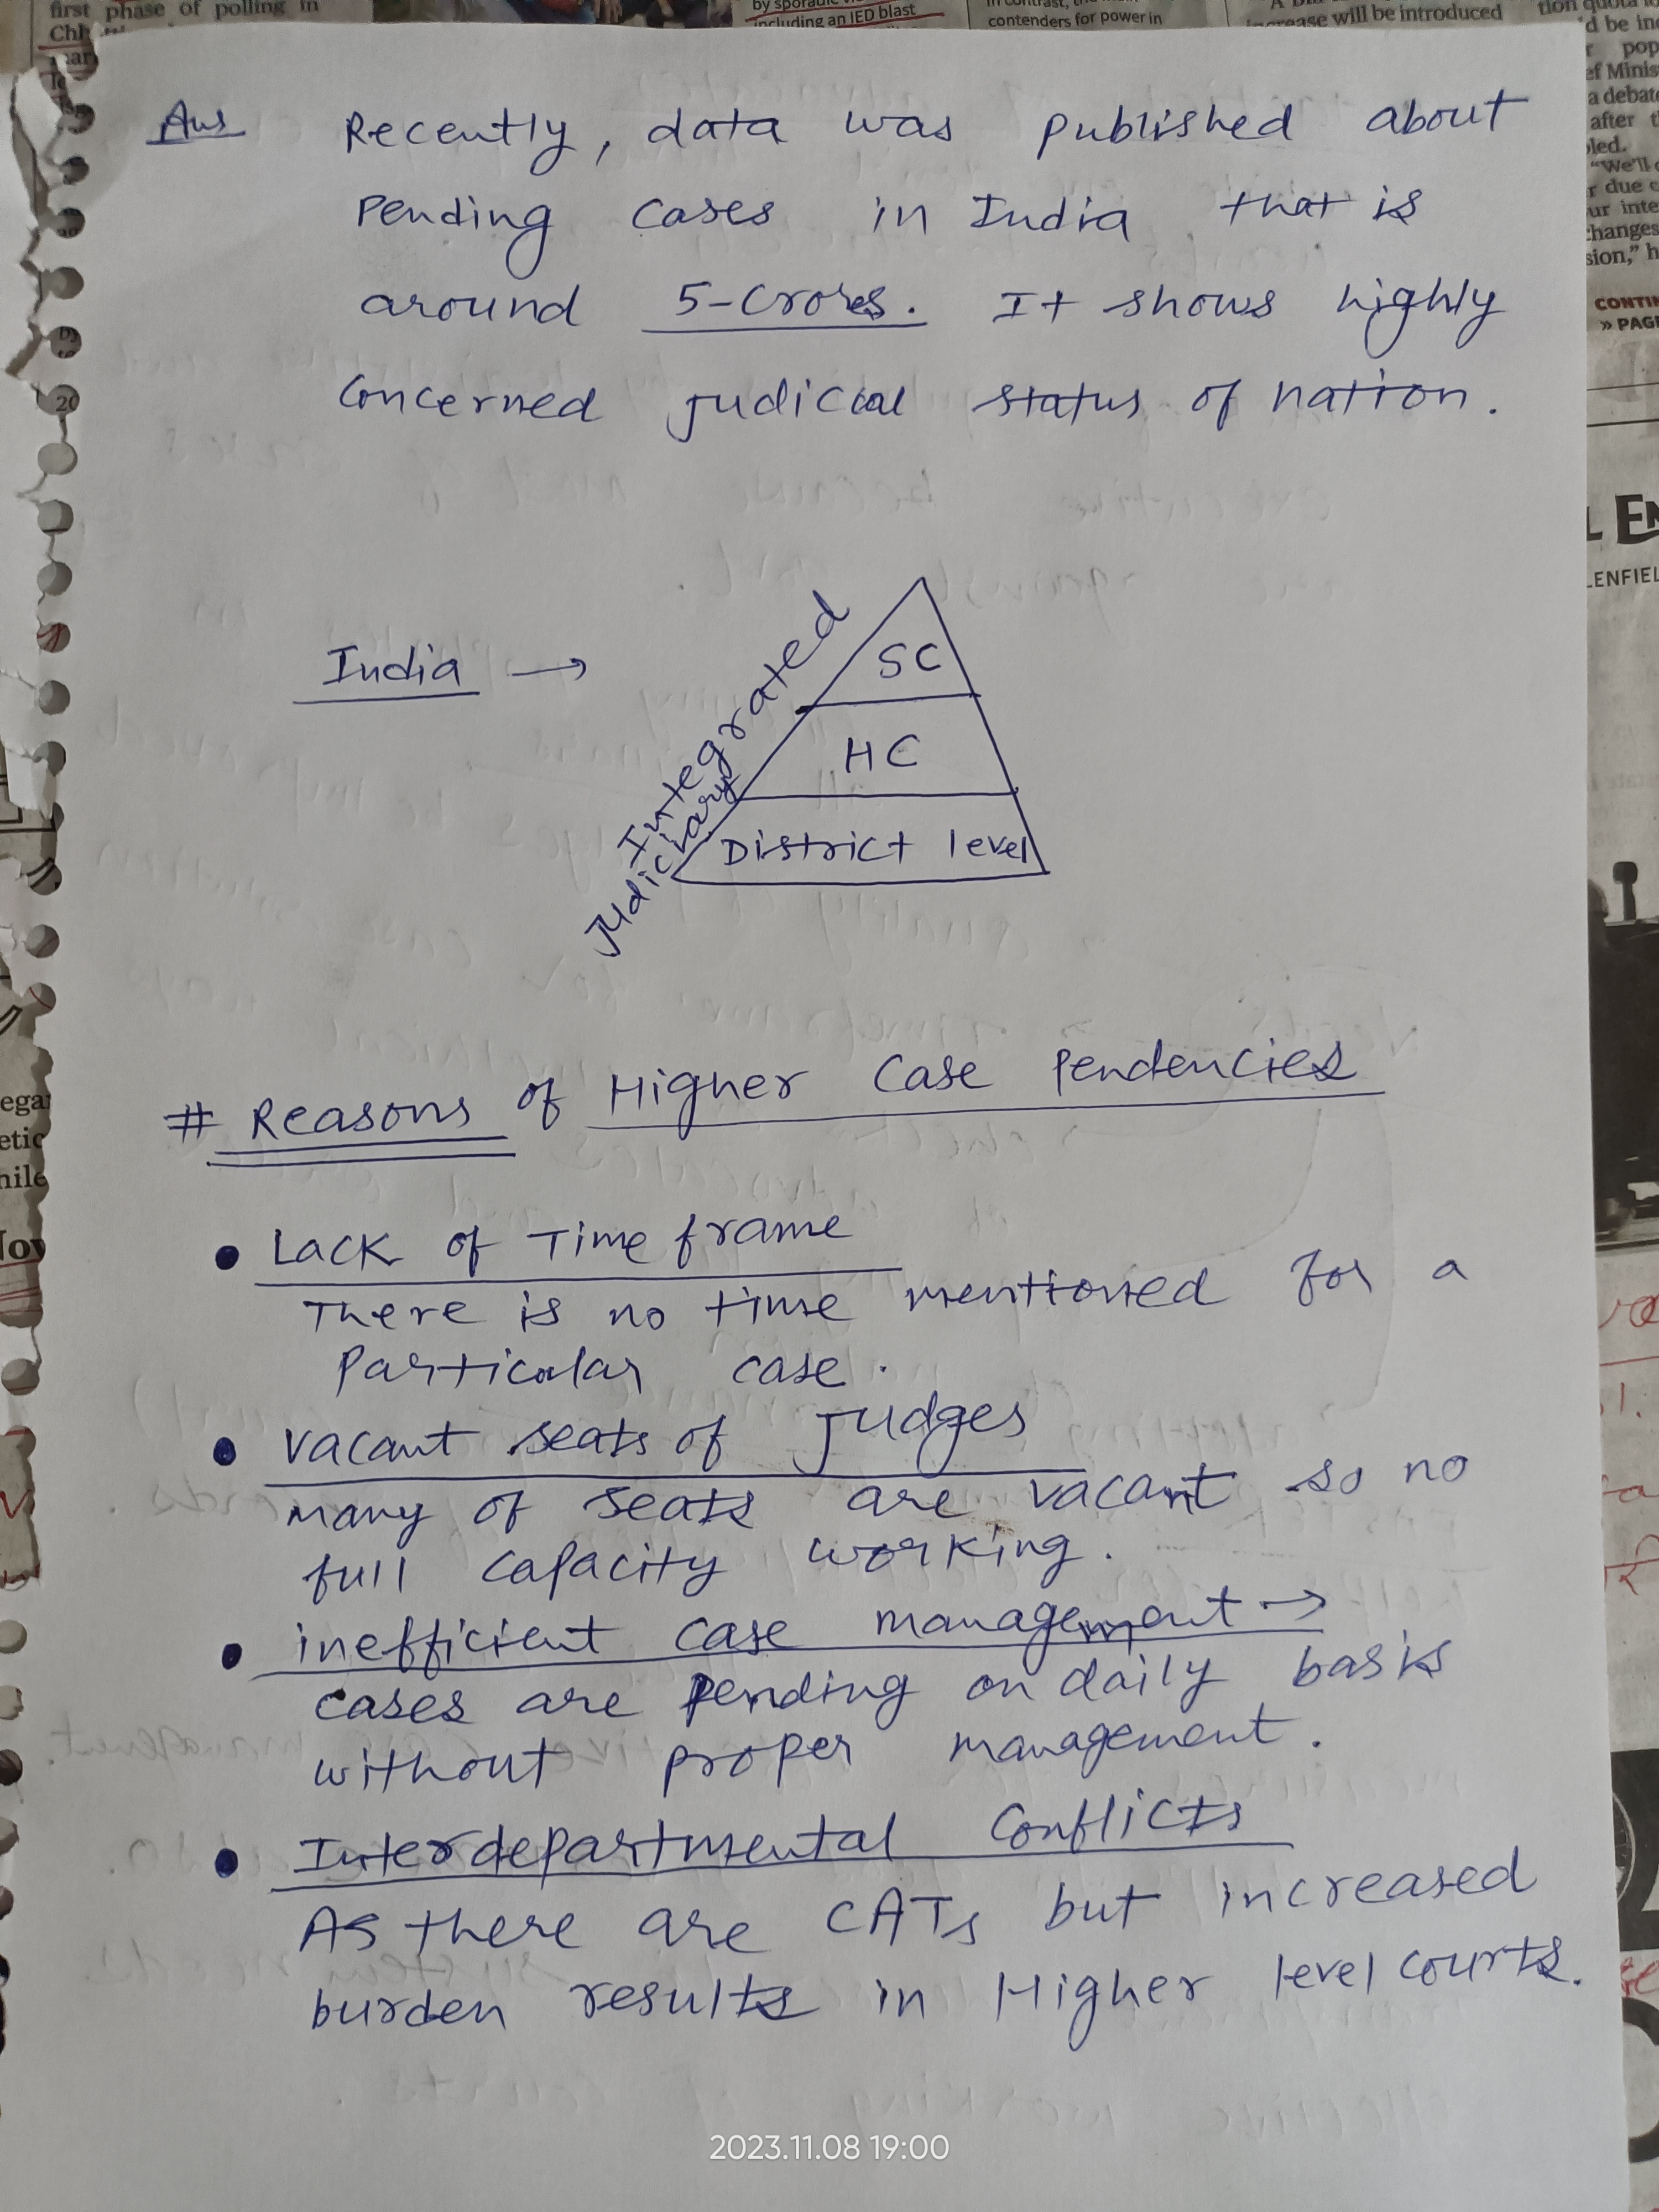 first phase of polling in
including an IED blast
contenders for power in
increase will be introduced
Ans Recently, data was published about
Pending cases in India that is
around 5-Crores. It shows highly
Concerned judicial status of nation.
India →
Integrated
Judiciary
SC
HC
District level
# Reasons of Higher Case Pendencies
• Lack of Time frame
There is no time mentioned for a
Particular case.
• vacant seats of Judges
many of seats are vacant so no
full capacity working.
• inefficient case management →
cases are pending on daily basis
without proper management.
• Interdepartmental Conflicts
As there are CATs but increased
burden results in Higher level courts.
a debate
after t
"We'll
changes
sion," h
CONTIN
» PAGE
2023.11.08 19:00